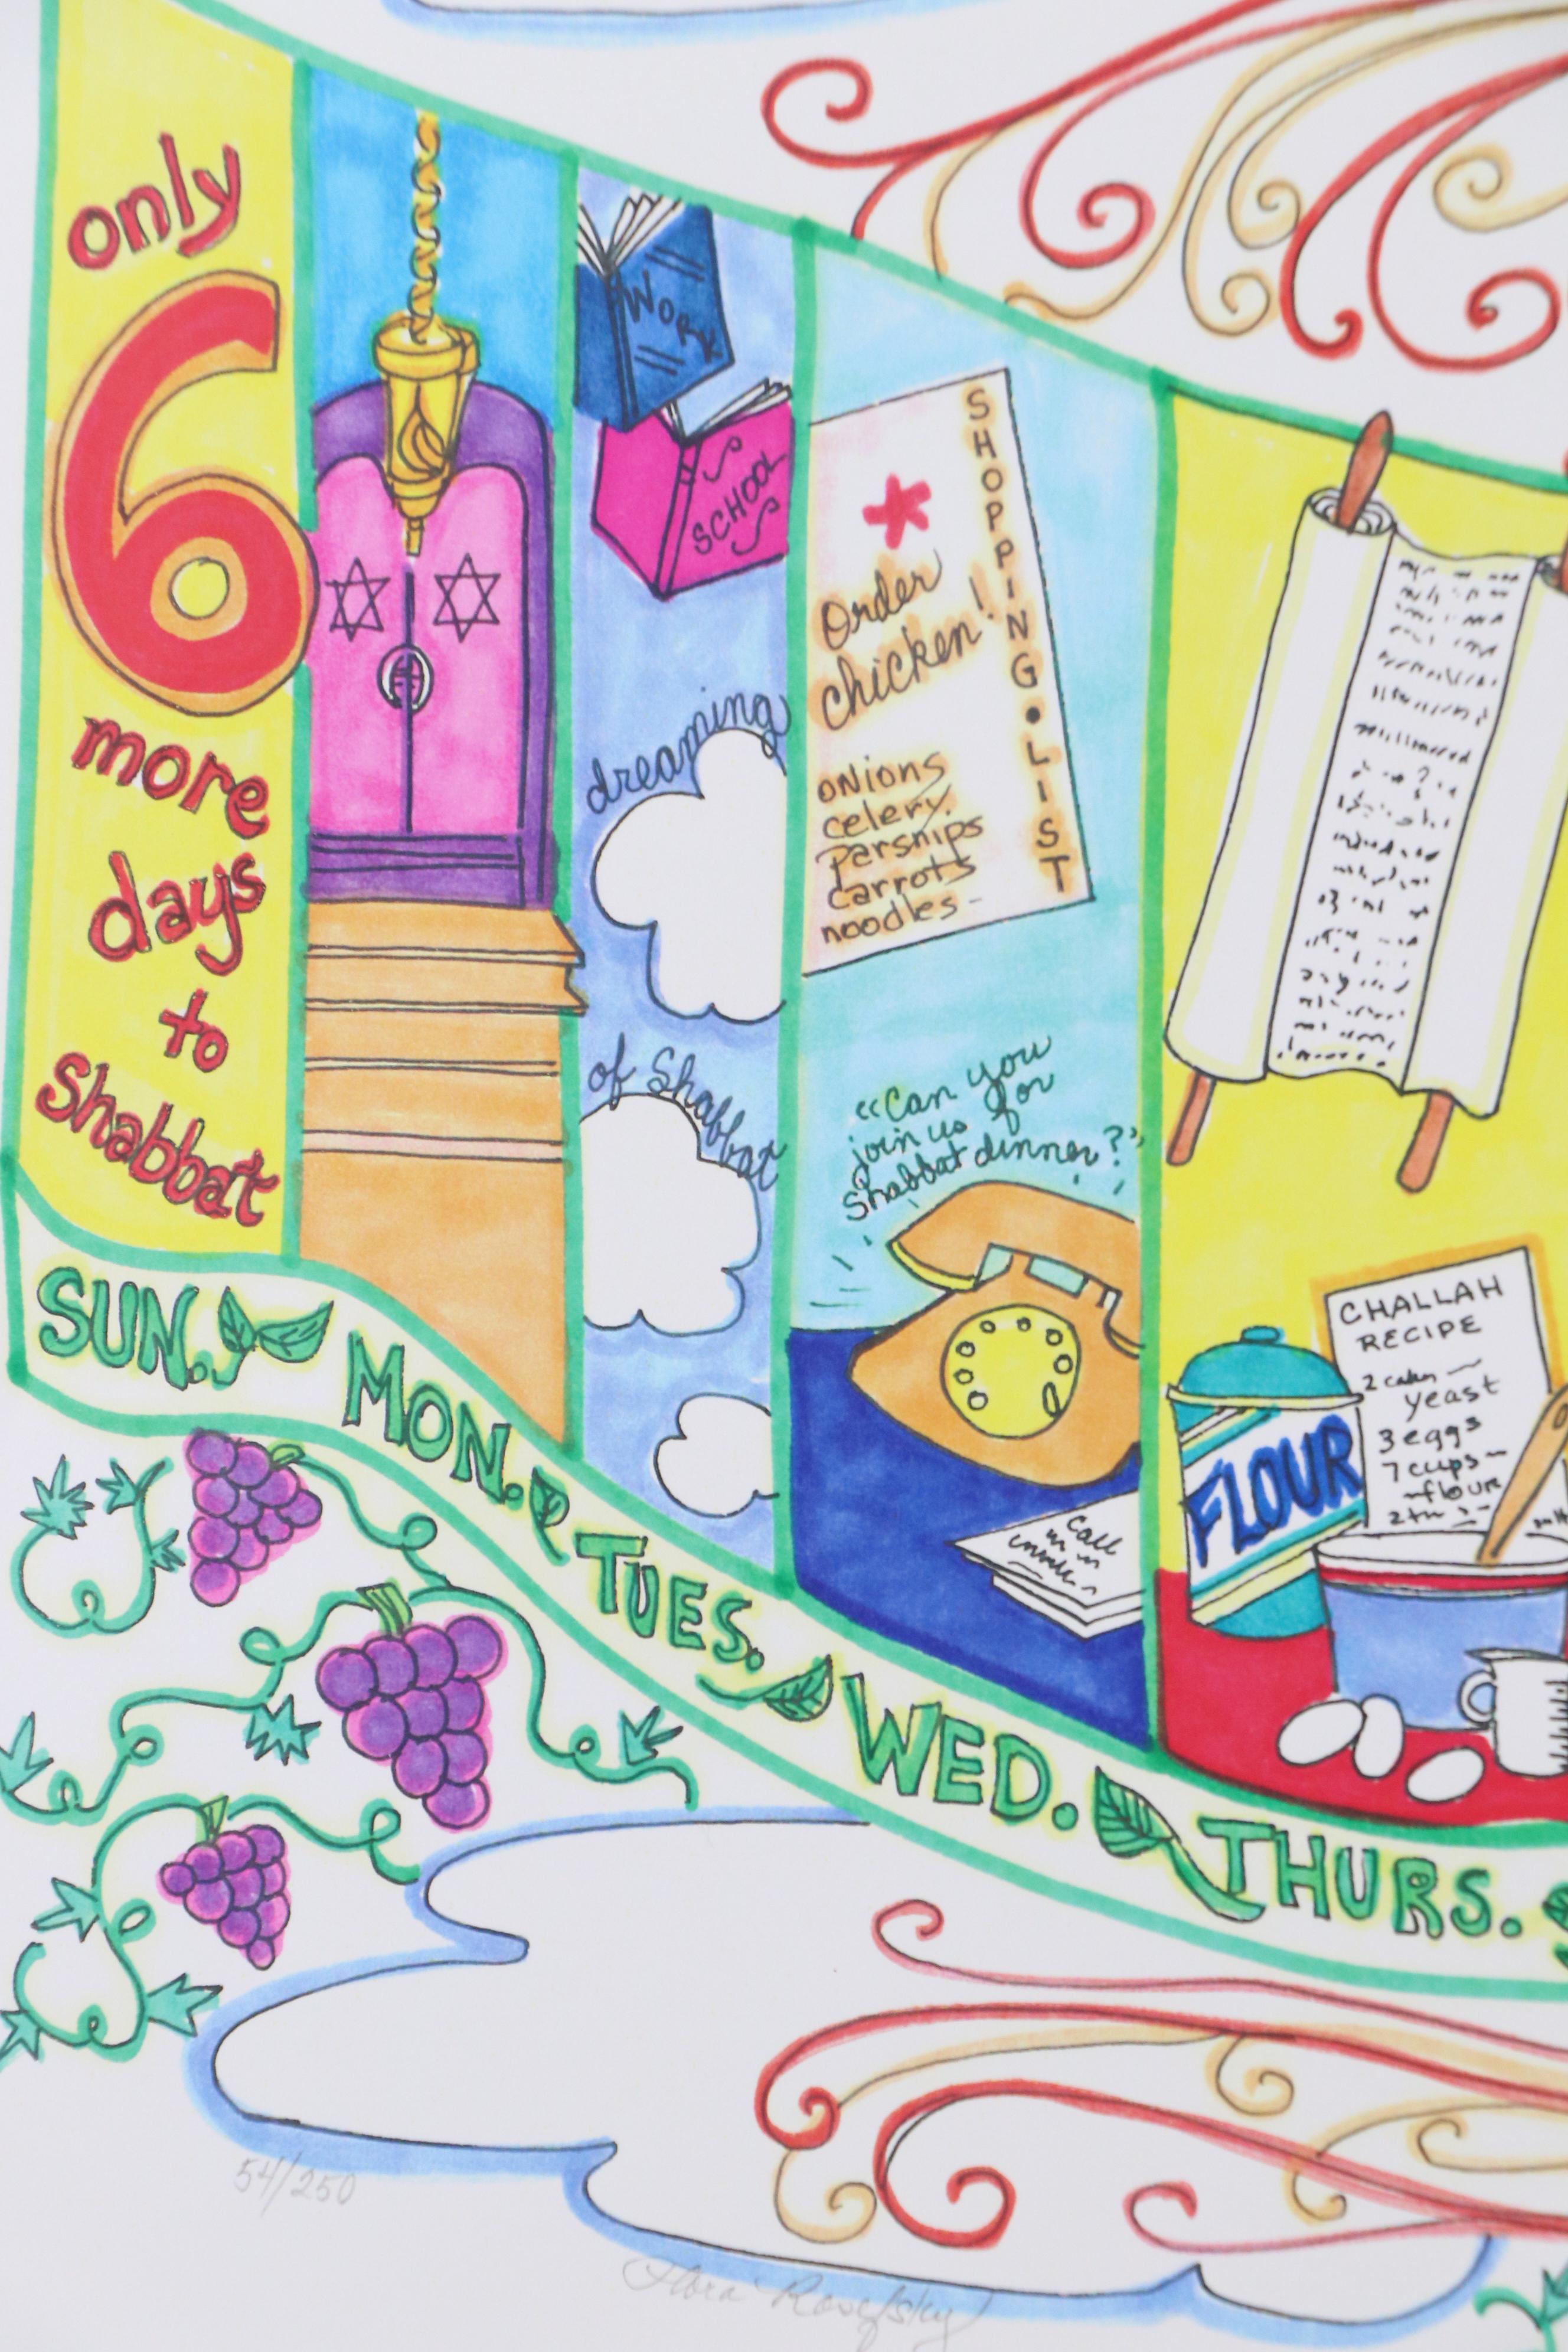 only
6
more
days
to
Shabbat
WORK
SCHOOL
dreaming
of Shabbat
SHOPPING • LIST
order
chicken!
onions
celery
parsnips
carrots
noodles-
"Can you
join us for
Shabbat dinner?"
Call
CHALLAH
RECIPE
2 cakes
yeast
3 eggs
7 cups
flour
FLOUR
SUN.
MON.
TUES.
WED.
THURS.
54/250
Flora Rosefsky